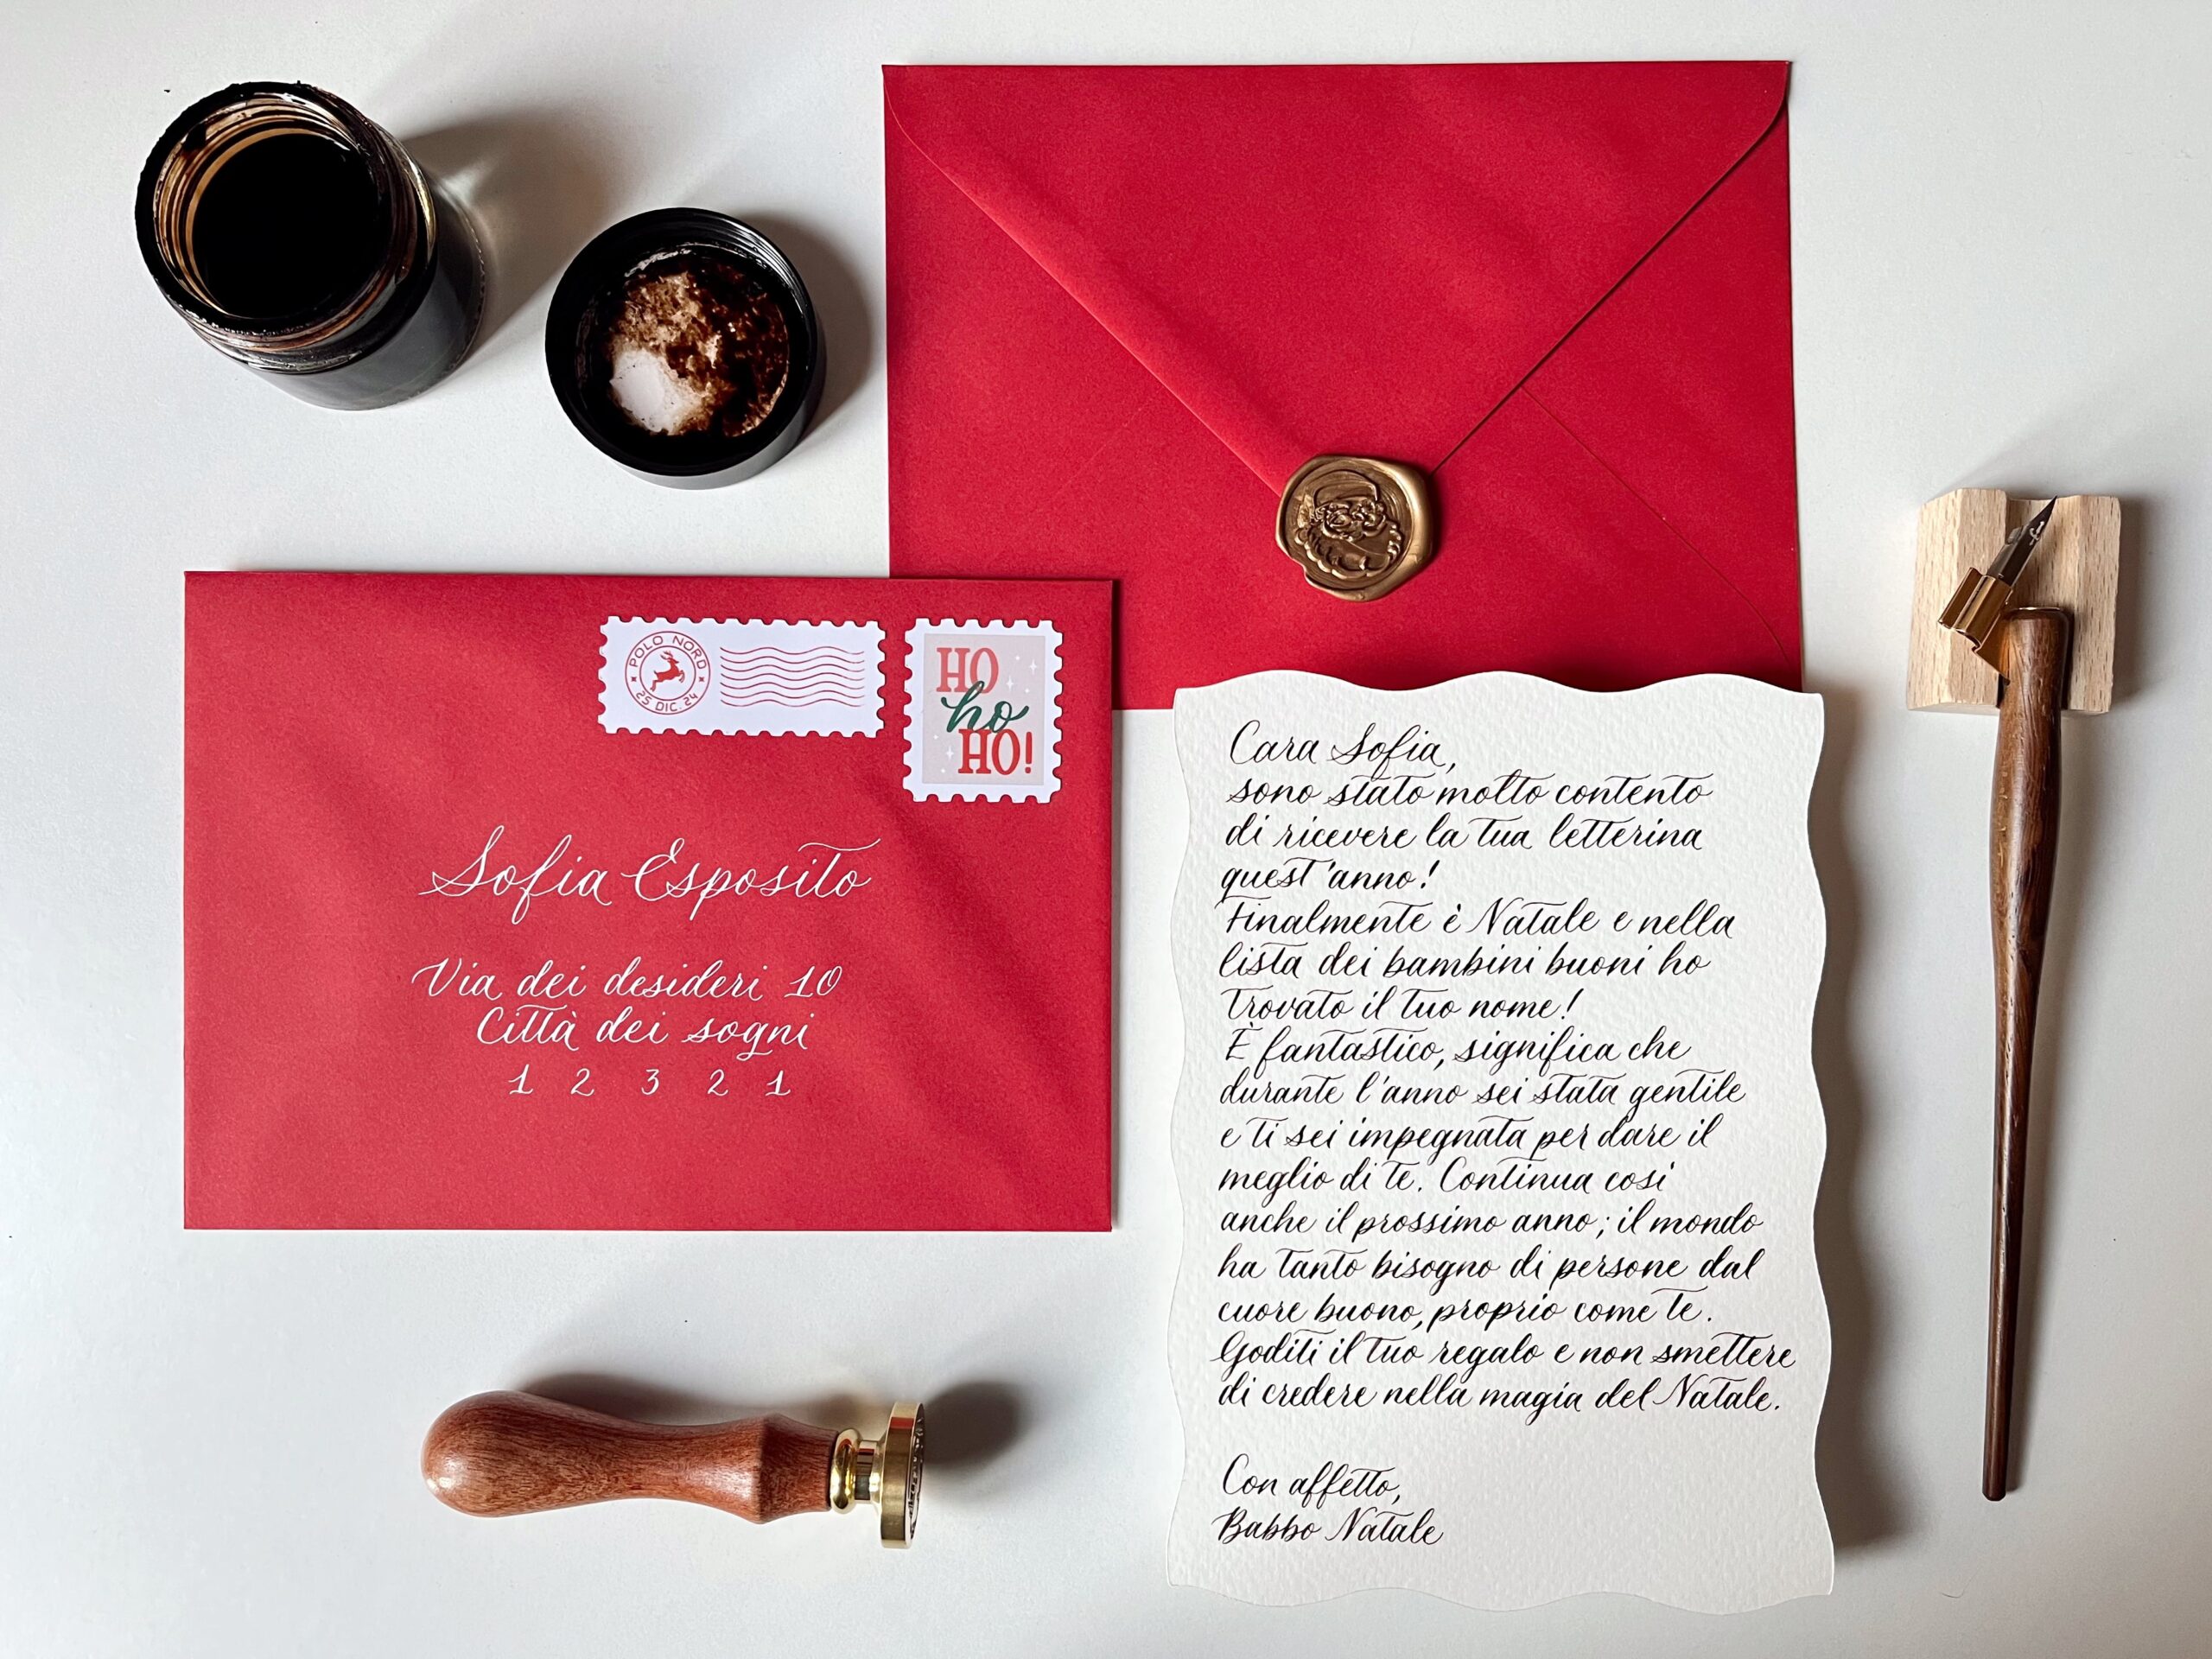 POLO NORD
25 DIC. 24
HO
ho
HO!
Sofia Esposito
Via dei desideri 10
Città dei sogni
1 2 3 2 1
Cara Sofia,
sono stato molto contento
di ricevere la tua letterina
quest'anno!
Finalmente è Natale e nella
lista dei bambini buoni ho
trovato il tuo nome!
È fantastico, significa che
durante l'anno sei stata gentile
e ti sei impegnata per dare il
meglio di te. Continua così
anche il prossimo anno; il mondo
ha tanto bisogno di persone dal
cuore buono, proprio come te.
Goditi il tuo regalo e non smettere
di credere nella magia del Natale.
Con affetto,
Babbo Natale